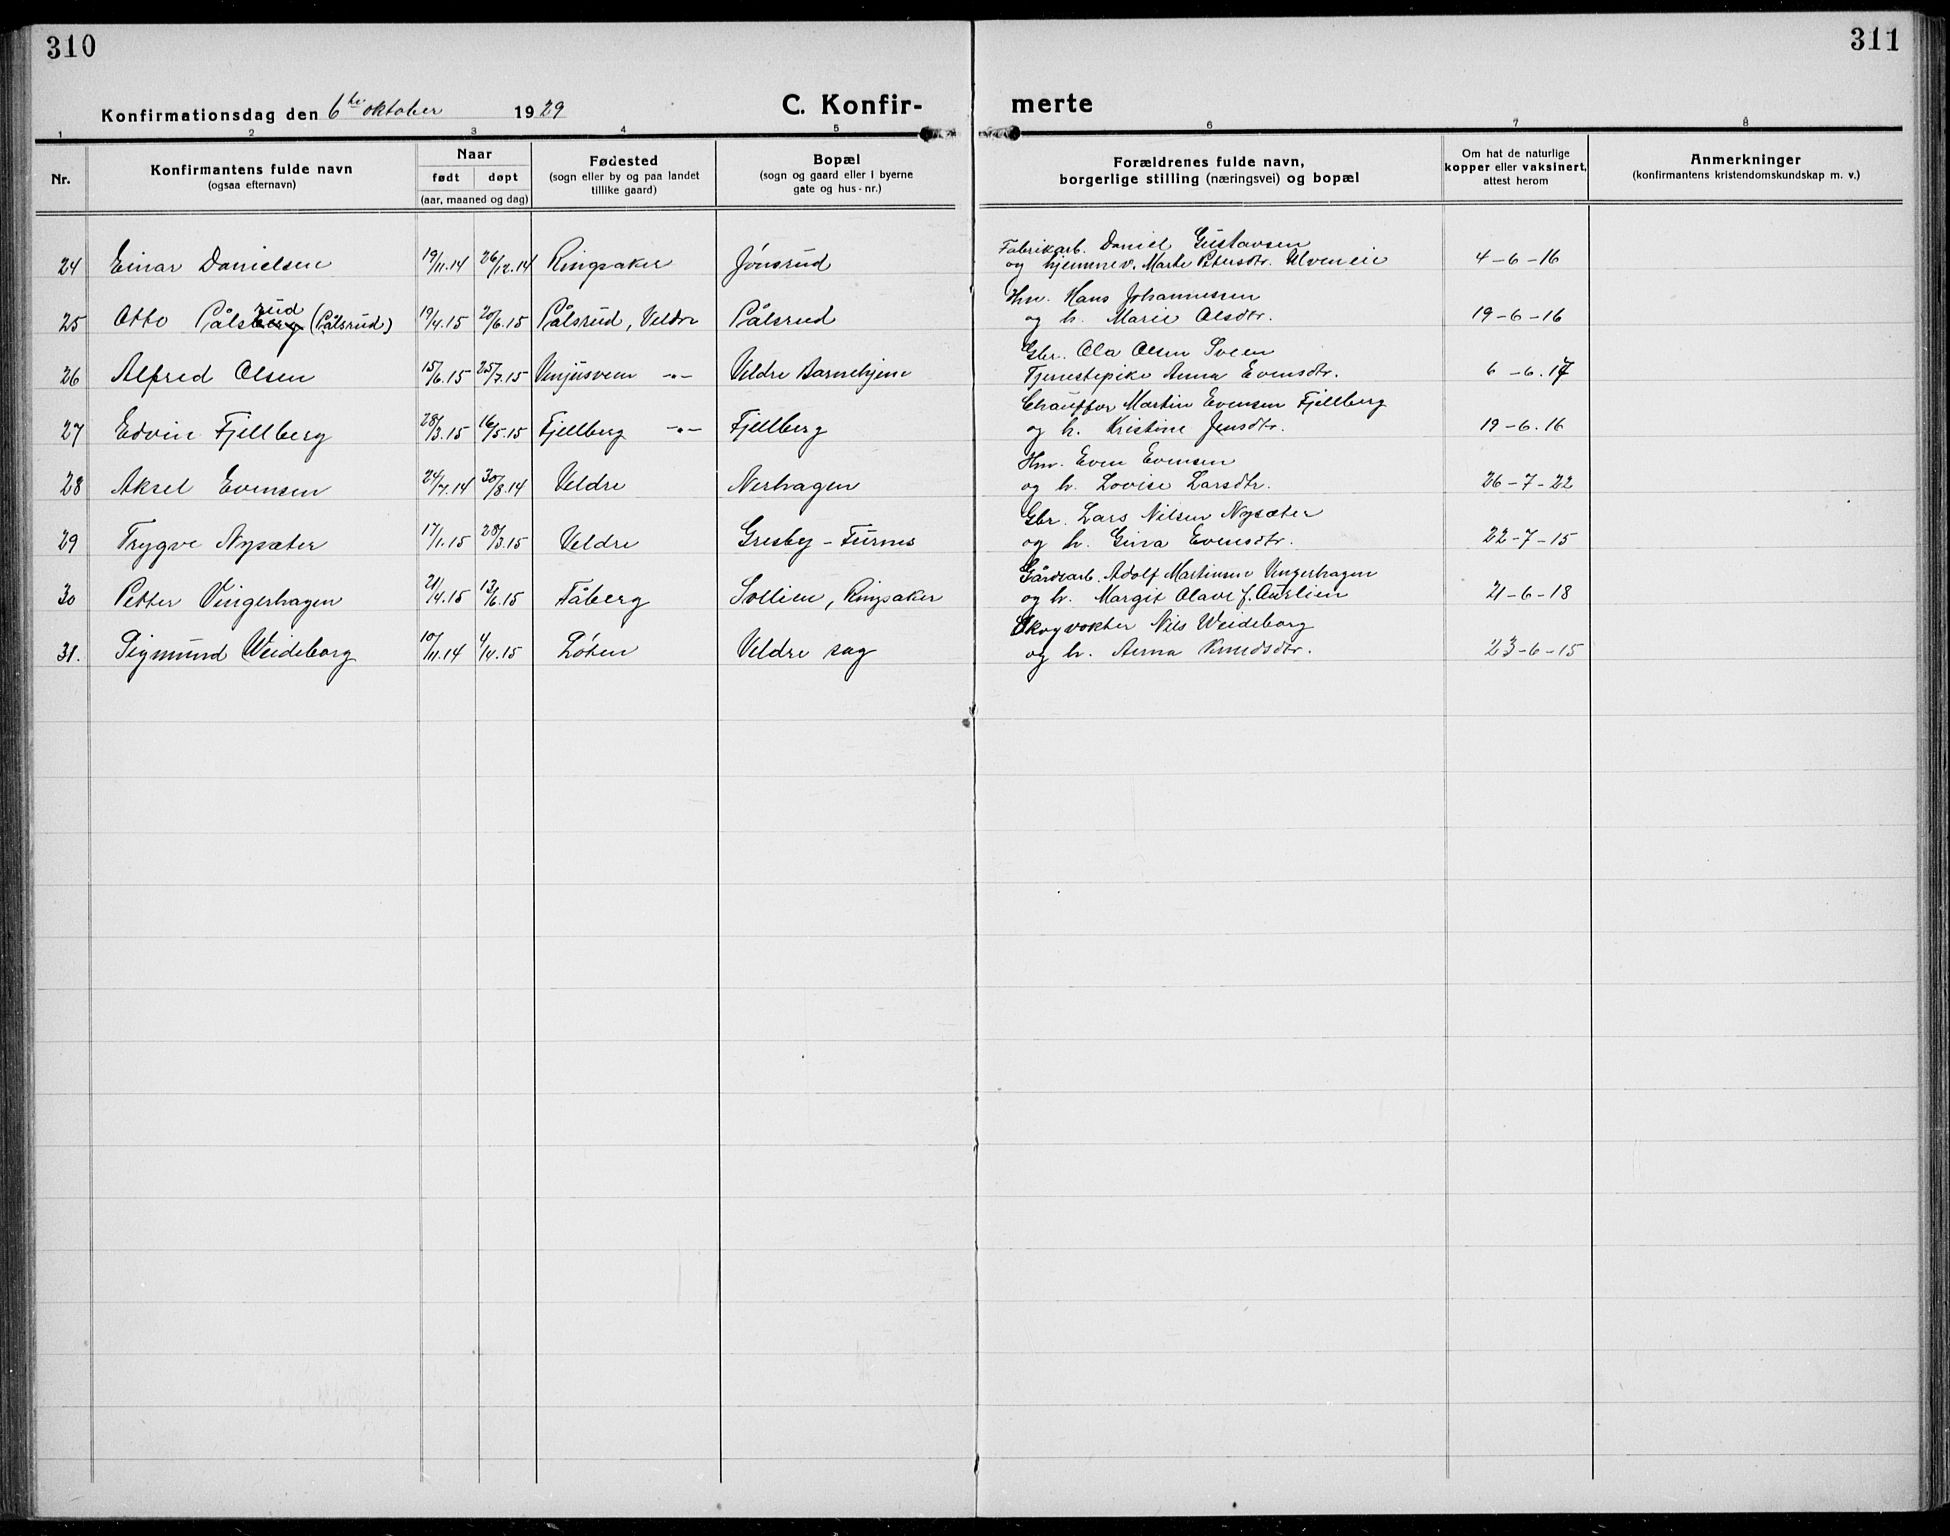 310
311
Konfirmationsdag den 6te oktober 1929
C. Konfir-
merte
1 2 3 4 5 6 7 8
Nr.
Konfirmantens fulde navn
(ogsaa efternavn)
Naar
født døpt
(aar, maaned og dag)
Fødested
(sogn eller by og paa landet
tillike gaard)
Bopæl
(sogn og gaard eller i byerne
gate og hus-nr.)
Forældrenes fulde navn,
borgerlige stilling (næringsvei) og bopæl
Om hat de naturlige
kopper eller vaksinert,
attest herom
Anmerkninger
(konfirmantens kristendomskundskap m. v.)
Fabrikarb. Daniel Gustavsen
24 Einar Danielsen 19/11.14 26/12.14 Ringsaker Jónsrud og hjemmev. Marte Petersdtr. Ulven eie 4-6-16
Hm. Hans Johannessen
25 Otto Pålsrud (Pålsrud) 19/4.15 20/6.15 Pålsrud, Veldre Pålsrud og h. Marie Olsdtr. 19-6-16
Gbr. Ola Olsen Sveen
26 Alfred Olsen 15/6.15 25/7.15 Vinjusveen -"- Veldre Barnehjem Tjenestepike Anna Evensdtr. 6-6.17
Chauffør Martin Evensen Fjellberg
27 Edvin Fjellberg 28/3.15 16/5.15 Fjellberg -"- Fjellberg og h. Kristine Jensdtr. 19-6.16
Hm. Even Evensen
28 Aksel Evensen 24/7.14 30/8.14 Veldre Nerhagen og h. Lovise Larsdtr. 26-7-22
Gbr. Lars Nilsen Nysæter
29 Trygve Nysæter 17/1.15 28/3.15 Veldre Gresby - Furnes og h. Gina Evensdtr. 22-7-15
Gårdsarb. Adolf Martinsen Vingerhagen
30 Petter Vingerhagen 21/4.15 13/6.15 Fåberg Sollien, Ringsaker og h. Margit Olave f. Aurlien 21-6-18
Skogvokter Nils Weideborg
31. Sigmund Weideborg 10/11.14 4/4.15 Løten Veldre sag og h. Anna Knudsdtr. 23-6-15